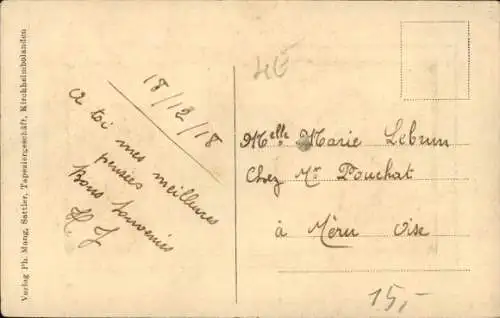 Verlag Ph. Mang, Sattler, Tapeziergeschäft, Kirchheimbolanden
18/12/18
a toi mes meilleures
pensées
Bons souvenirs
H J
4E
Melle Marie Lebrun
Chez Mr Pouchat
à Méru Oise
15,-